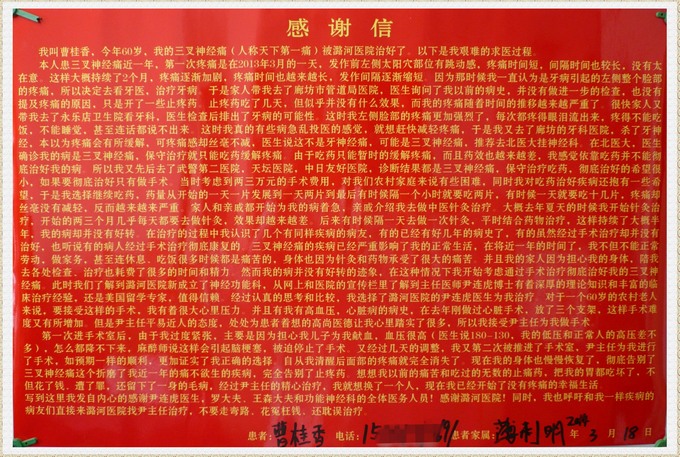 感谢信
我叫曹桂香，今年60岁，我的三叉神经痛（人称天下第一痛）被潞河医院治好了。以下是我艰难的求医过程。
本人患三叉神经痛近一年，第一次疼痛是在2013年3月的一天，发作前左侧太阳穴部位有跳动感，疼痛时间短，间隔时间也较长，没有太
在意。这样大概持续了2个月，疼痛逐渐加剧，疼痛时间也越来越长，发作间隔逐渐缩短。因为那时候我一直认为是牙病引起的左侧整个脸部
的疼痛，所以决定去看牙医，治疗牙病。于是家人带我去了廊坊市管道局医院，医生询问了我以前的病史，并没有做进一步的检查，也没有
提及疼痛的原因，只是开了一些止疼药。止疼药吃了几天，但似乎并没有什么效果，而我的疼痛随着时间的推移越来越严重了。很快家人又
带我去了永乐店卫生院看牙科，医生检查后排出了牙病的可能性。这时我左侧脸部的疼痛更加强烈了，每次都疼得眼泪流出来，疼得不能吃
饭，不能睡觉，甚至连话都说不出来。这时我真的有些病急乱投医的感觉，就想赶快减轻疼痛，于是我又去了廊坊的牙科医院，杀了牙神
经，本以为疼痛会有所缓解，可疼痛感却丝毫不减，医生说这不是牙神经痛，可能是三叉神经痛，推荐去北医大挂神经科。在北医大，医生
确诊我的病是三叉神经痛，保守治疗就只能吃药缓解疼痛。由于吃药只能暂时的缓解疼痛，而且药效也越来越差，我感觉依靠吃药并不能彻
底治好我的病。所以我又先后去了武警第二医院，天坛医院，中日友好医院，诊断结果都是三叉神经痛，保守治疗吃药，彻底治好的希望很
小，如果要彻底治好只有做手术。当时考虑到两三万元的手术费用，对我们农村家庭来说有些困难，同时我对吃药治好疾病还抱有一些希
望，于是我选择继续吃药，药量从开始的一天一片发展到一天两片到最后有时候隔一个小时就要吃两片，有时候一天就要吃十几片，疼痛却
丝毫没有减轻，反而越来越严重，家人和亲戚都开始为我的病着急，亲戚介绍我去做中医针灸治疗。大概去年夏天的时候我开始针灸治
疗，开始的两三个月几乎每天都要去做针灸，效果却越来越差。后来有时候隔一天去做一次针灸，平时结合药物治疗，这样持续了大概半
年，我的病却并没有好转。在治疗的过程中我认识了几个有同样疾病的病友，有的已经有好几年的病史了，有的虽然经过手术治疗却并没有
治好，也听说有的病人经过手术治疗彻底康复的。三叉神经痛的疾病已经严重影响了我的正常生活，在将近一年的时间了，我不但不能正常
劳动，做家务，甚至连休息、吃饭很多时候都是痛苦的，身体也因为针灸和药物承受了很大的痛苦。并且我的家人因为担心我的身体，陪我
去各处检查、治疗也耗费了很多的时间和精力。然而我的病并没有好转的迹象，在这种情况下我开始考虑通过手术治疗彻底治好我的三叉神
经痛。此时我们了解到潞河医院新成立了神经功能科，从网上和医院的宣传栏里了解到主任医师尹连虎博士有着深厚的理论知识和丰富的临
床治疗经验，还是美国留学专家，值得信赖。经过认真的思考和比较，我选择了潞河医院的尹连虎医生为我治疗。对于一个60岁的农村老人
来说，要接受这样的手术，我有着很大心里压力。并且有我有高血压，心脏病的病史，在去年刚做过心脏手术，放了三个支架，这样手术难
度又有所增加。但是尹主任平易近人的态度，处处为患者着想的高尚医德让我心里踏实了很多，所以我接受尹主任为我做手术。
第一次进手术室后，由于我过度紧张，主要是因为担心我儿子为我献血，血压很高（医生说180-130，我的低压和正常人的高压差不
多），怎么都降不下来，麻醉师说这样会引起脑梗塞，被迫停止了手术。又经过几天的调整，我又第二次被推进了手术室，尹主任为我进行
了手术，如预期一样的顺利，更加证实了我正确的选择。自从我清醒后面部的疼痛就完全消失了。现在我的身体也慢慢恢复了，彻底告别了
三叉神经痛这个折磨了我近一年的痛不欲生的疾病，完全告别了止疼药。想想我以前的痛苦和吃过的无数的止痛药，把我的胃都吃坏了，不
但花了钱，遭了罪，还留下了一身的毛病，经过尹主任的精心治疗，我就想换了一个人，现在我已经开始了没有疼痛的幸福生活。
写到这里我发自内心的感谢尹连虎医生，罗大夫、王森大夫和功能神经科的全体医务人员！感谢潞河医院！同时，我也呼吁和我一样疾病的
病友们直接来潞河医院找尹主任治疗，不要走弯路、花冤枉钱、还耽误治疗。
患者：曹桂香 电话：15 691 患者家属：薄利明 2014年3月18日